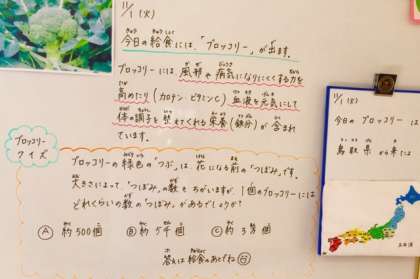 11/1（火）
今日の給食には、「ブロッコリー」が出ます。
ブロッコリーには風邪や病気になりにくくする力を
高めたり（カロテン・ビタミンC）血液を元気にして
体の調子を整えてくれる栄養（鉄分）が含まれ
ています。
ブロッコリー
クイズ
ブロッコリーの緑色の「つぶ」は、花になる前の「つぼみ」です。
大きさによって、「つぼみ」の数もちがいますが、1個のブロッコリーには
どれくらいの数の「つぼみ」があるでしょうか？
Ⓐ 約500個 Ⓑ 約5千個 Ⓒ 約3万個
答えは給食のあとでね
11/1（火）
今日のブロッコリーは
鳥取県から来た